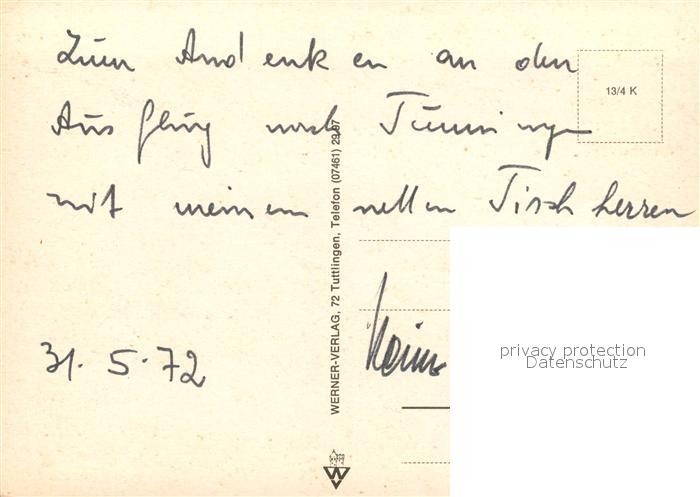 Zum Andenken an den
13/4 K
Ausflug nach Tuningen
mit meinem netten Tischherren
31. 5. 72
WERNER-VERLAG, 72 Tuttlingen, Telefon (07461) 29 97
privacy protection
Datenschutz
W